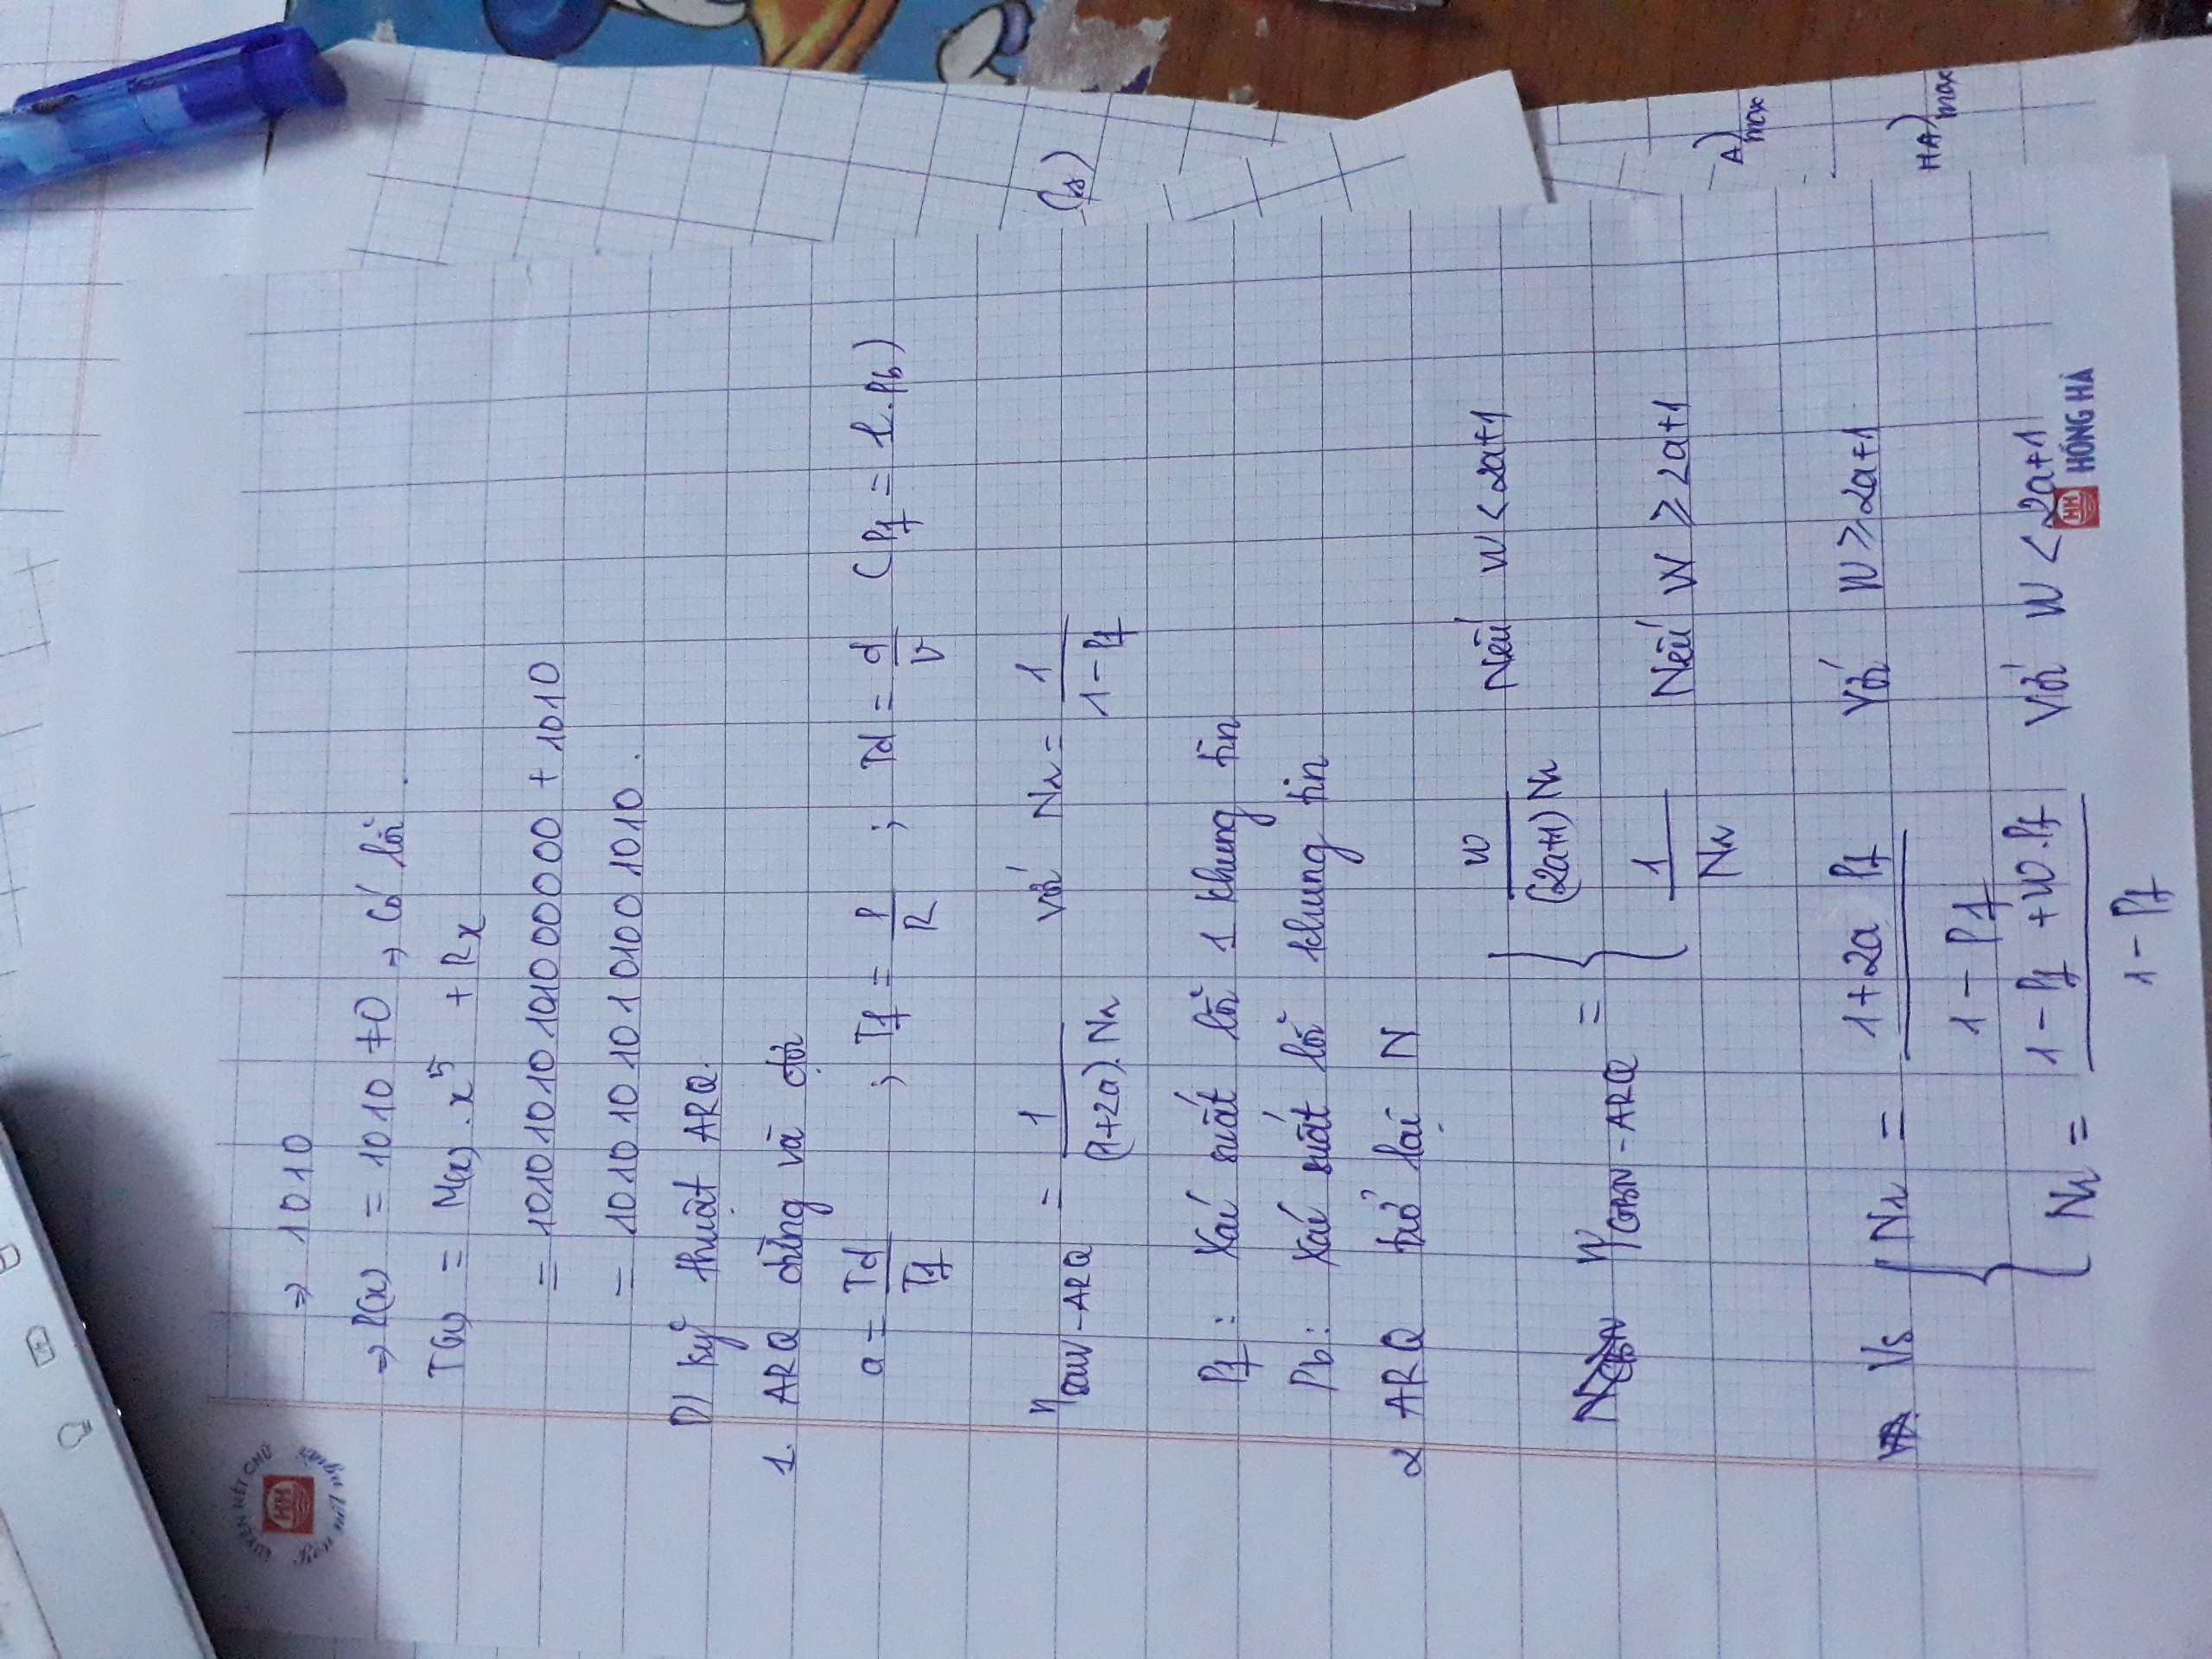 LUYỆN NÉT CHỮ
HH
Rèn nết người
⇒ 1010
⇒ R(x) = 1010 ≠0 → Có lỗi.
T(x) = M(x).x⁵ + Rx
= 1010101010101000000 + 1010
= 1010 10 10 10100 1010.
D) Kỹ thuật ARQ.
1. ARQ dừng và đợi
a = Td/Tf ; Tf = l/R ; Td = d/v (Pf = l.Pb)
ηSAW-ARQ = 1/((1+2a).Nr) Với Nr = 1/(1-Pf)
(s)
Pf : Xác suất lỗi 1 khung tin
Pb: Xác suất lỗi khung tin
2 ARQ trở lại N
ηGBN-ARQ = { W/((2a+1)Nr) Nếu W < 2a+1
1/Nr Nếu W ≥ 2a+1
A)max
Vs { Nr = (1+2a Pf)/(1-Pf) Với W ≥ 2a+1
HA)max
Nr = (1-Pf +W.Pf)/(1-Pf) Với W < 2a+1
HH HỒNG HÀ